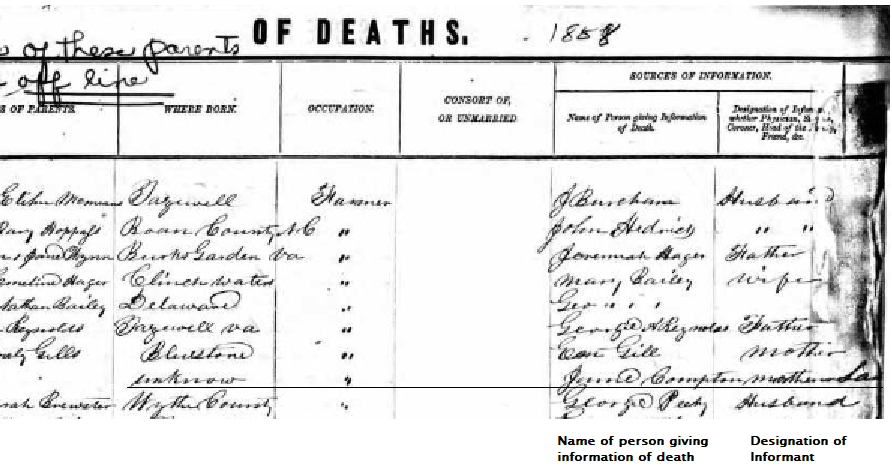 s of these parents OF DEATHS. 1858
off line
SOURCES OF INFORMATION.
S OF PARENTS. WHERE BORN. OCCUPATION. CONSORT OF, OR UNMARRIED Name of Person giving Information of Death. Designation of whether Physician, Coroner, Head of the Friend, &c.
Tazewell Farmer J Burcham Husband
Hoppess Roan County NC " John Hedrick " "
Jane Wynn Burks Garden Va " Jeremiah Hager Father
Hager Clinch waters " Mary Bailey wife
Nathan Bailey Delaware " Geo " " "
Reynolds Tazewell Va " George A Reynolds Father
Gills Bluestone " Gill mother
unknow " Compton mother
Brewster Wythe County " George Peery Husband
Name of person giving information of death
Designation of Informant